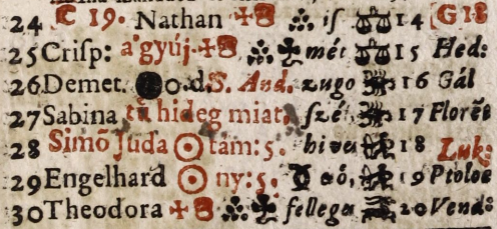 24 C 19. Nathan ıſ 14 G 18
25 Criſp: a'gyúj. mét 15 Hed:
26 Demet. o. d. S. And. zugo 16 Gál
27 Sabina tū hideg miat, ſzé 17 Florē
28 Simō Juda tám: 5. hiva 18 Luk:
29 Engelhard ny: 5. aó, 19 Ptoloe
30 Theodora fellega 20 Vend: